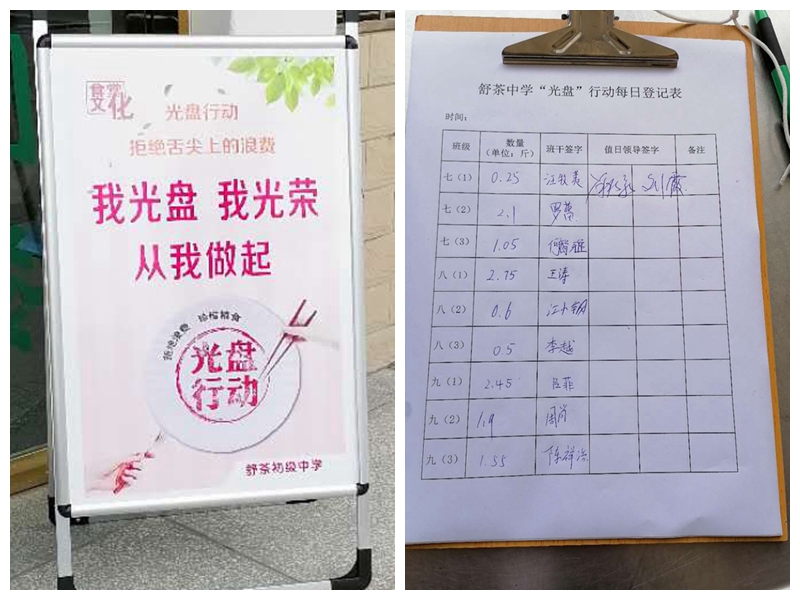 食堂
文化
光盘行动
拒绝舌尖上的浪费
我光盘 我光荣
从我做起
拒绝浪费 珍惜粮食
光盘
行动
舒茶初级中学
舒茶中学“光盘”行动每日登记表
时间：
班级 数量（单位：斤） 班干签字 值日领导签字 备注
七（1） 0.25
七（2） 2.1
七（3） 1.05
八（1） 2.75 王涛
八（2） 0.6
八（3） 0.5 李越
九（1） 2.45
九（2） 1.9 周肖
九（3） 1.35